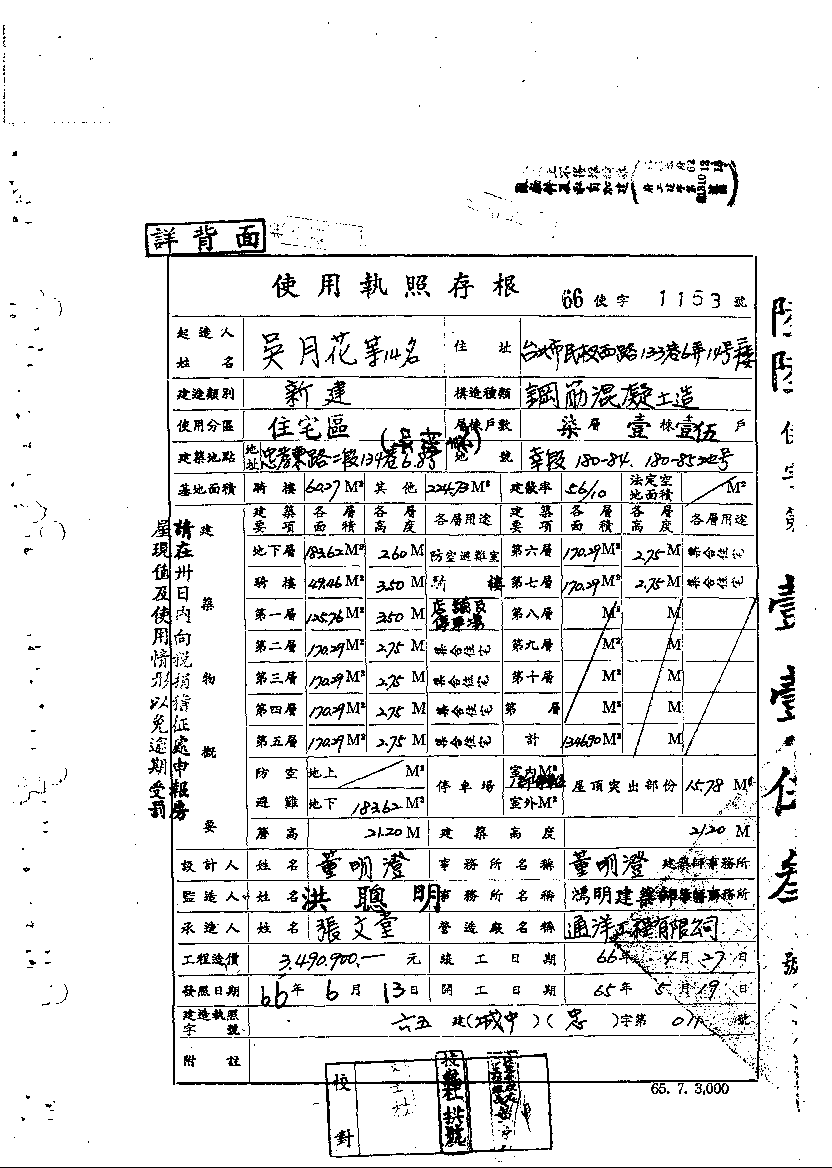 詳背面
使用執照存根
66 使字 1153 號
起造人姓名 吳月花等14名 住址 台北市民權西路133巷6弄14號
建造類別 新建 構造種類 鋼筋混凝土造
使用分區 住宅區 層棟戶數 柒層 壹棟 壹伍戶
建築地點 地址 忠孝東路二段134巷6.8号 地號 幸段 180-84. 180-85
基地面積 騎樓 60.27 M² 其他 224.73 M² 建蔽率 56/10 法定空地面積 M²
建築要項 各層面積 各層高度 各層用途 建築要項 各層面積 各層高度 各層用途
建築物概要
地下層 183.62 M² 2.60 M 防空避難室 第六層 170.29 M² 2.75 M 集合住宅
騎樓 49.46 M² 3.50 M 騎樓 第七層 170.29 M² 2.75 M 集合住宅
第一層 125.76 M² 3.50 M 店鋪及停車場 第八層 M² M
第二層 170.29 M² 2.75 M 集合住宅 第九層 M² M
第三層 170.29 M² 2.75 M 集合住宅 第十層 M² M
第四層 170.29 M² 2.75 M 集合住宅 第 層 M² M
第五層 170.29 M² 2.75 M 集合住宅 計 1346.90 M² M
防空避難 地上 M² 停車場 室內 M² 屋頂突出部份 15.78 M²
地下 183.62 M² 室外 M²
簷高 21.20 M 建築高度 21.20 M
設計人 姓名 董明澄 事務所名稱 董明澄建築師事務所
監造人 姓名 洪聰明 事務所名稱 鴻明建築師事務所
承造人 姓名 張文堂 營造廠名稱 通洋工程有限公司
工程造價 3,490,900.— 元 竣工日期 66年 4月 27日
發照日期 66年 6月 13日 開工日期 65年 5月 19日
建造執照字號 六五 建(城中)(忠)字第 號
附註
65. 7. 3,000
請在卅日內向稅捐稽征處申報房
屋現值及使用情形以免逾期受罰
陸陸使字第壹壹伍叁號
校對